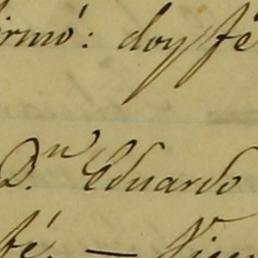 irmó: doy fé
D.ⁿ Eduardo
fé. —